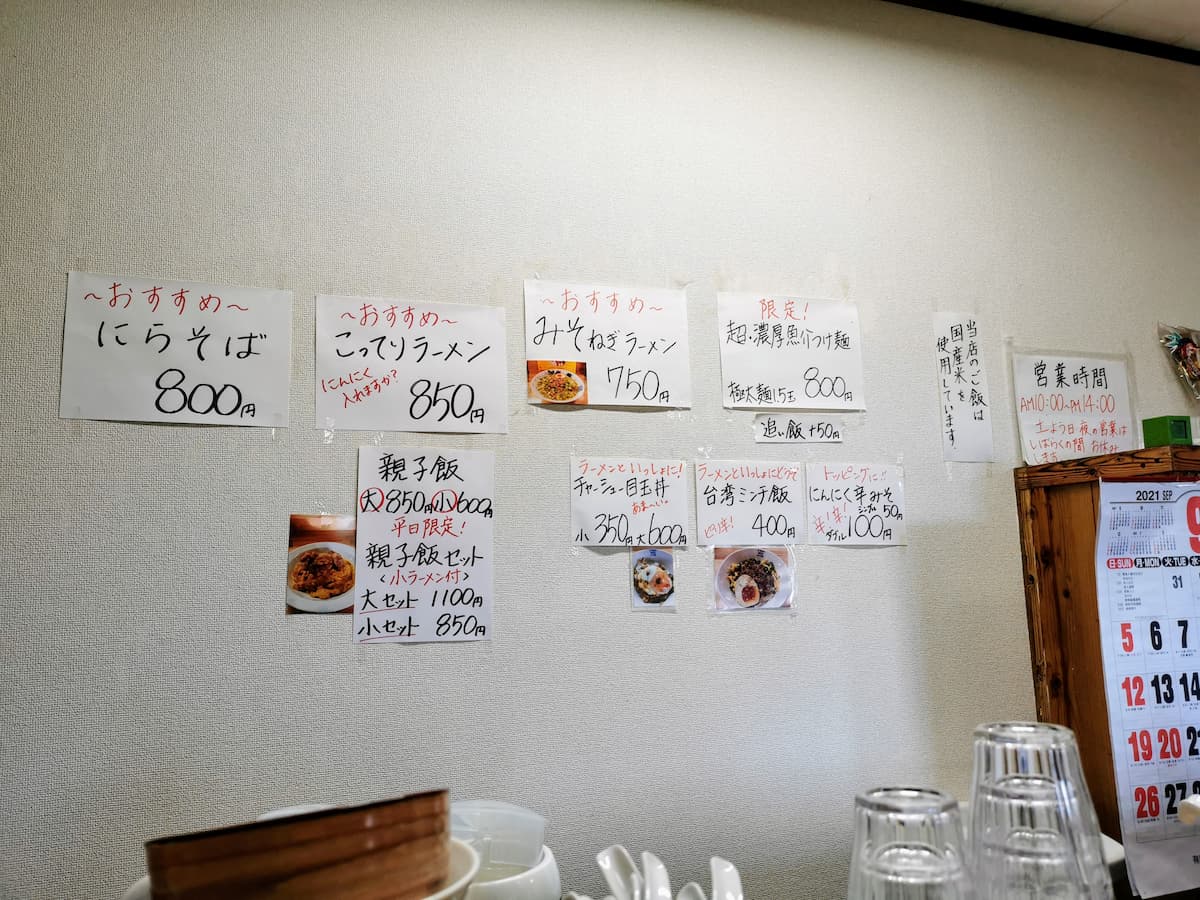 ～おすすめ～
にらそば
800円
～おすすめ～
こってりラーメン
にんにく
入れますか?
850円
～おすすめ～
みそねぎラーメン
750円
限定!
超・濃厚魚介つけ麺
極太麺1.5玉 800円
追い飯 +50円
当店のご飯は
国産米を
使用しています.
営業時間
AM10:00~PM14:00
土よう日 夜の営業は
しばらくの間 お休み
します
親子飯
大850円小600円
平日限定!
親子飯セット
〈小ラーメン付〉
大セット 1100円
小セット 850円
ラーメンといっしょに!
チャーシュー目玉丼
あま～い。
小350円大600円
ラーメンといっしょにどうぞ
台湾ミンチ飯
ピリ辛! 400円
トッピングに!!
にんにく辛みそ
辛!辛! シングル50円
ダブル100円
2021 SEP
9
日・SUN 月・MON 火・TUE 水
31
5 6 7
12 13 14
19 20 21
26 27